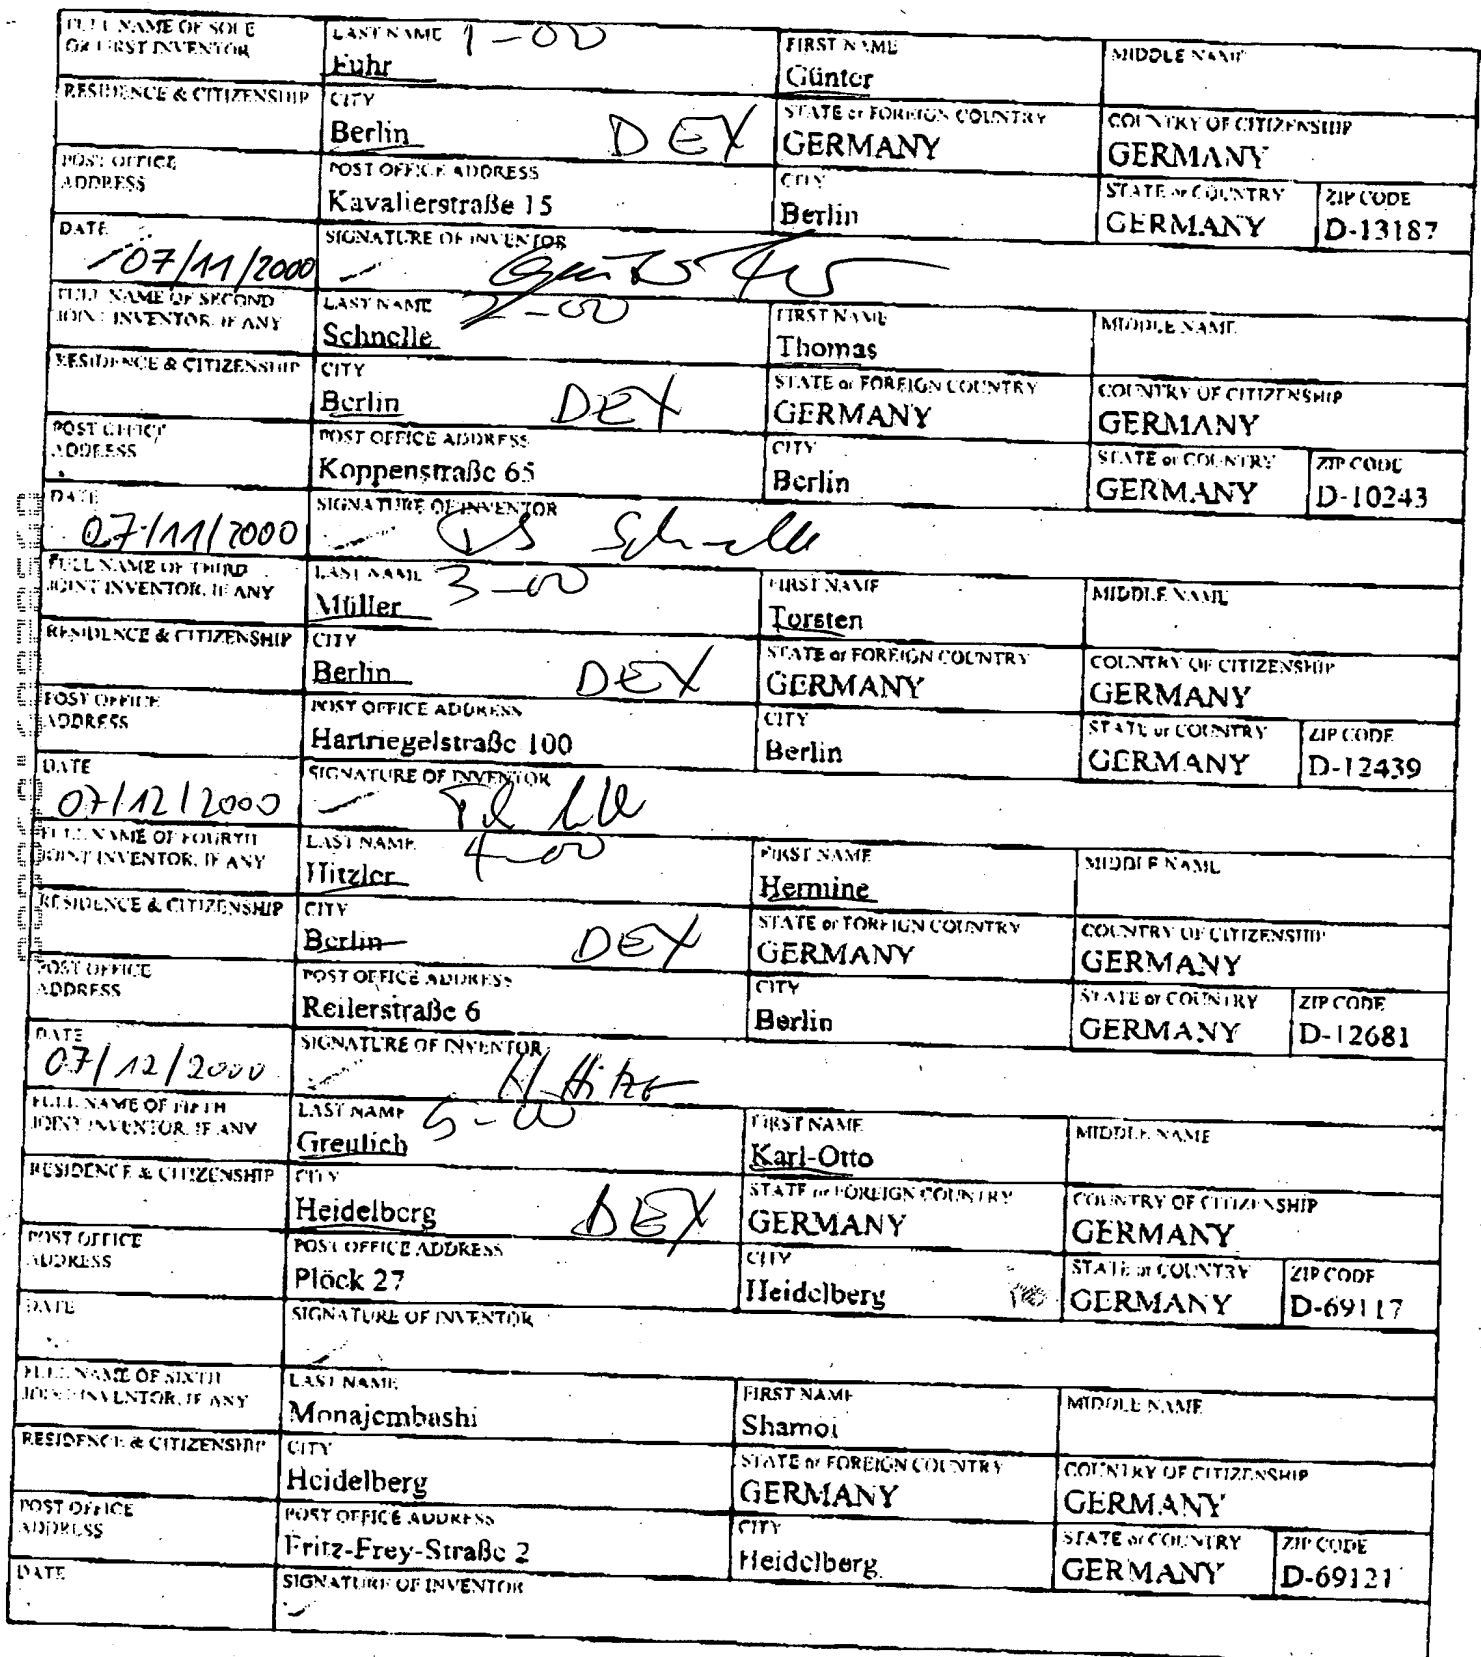 FULL NAME OF SOLE OR FIRST INVENTOR LAST NAME 1-00 Fuhr FIRST NAME Günter MIDDLE NAME
RESIDENCE & CITIZENSHIP CITY Berlin DEX STATE or FOREIGN COUNTRY GERMANY COUNTRY OF CITIZENSHIP GERMANY
POST OFFICE ADDRESS POST OFFICE ADDRESS Kavalierstraße 15 CITY Berlin STATE or COUNTRY GERMANY ZIP CODE D-13187
DATE 07/11/2000 SIGNATURE OF INVENTOR
FULL NAME OF SECOND JOINT INVENTOR, IF ANY LAST NAME 2-00 Schnelle FIRST NAME Thomas MIDDLE NAME
RESIDENCE & CITIZENSHIP CITY Berlin DEX STATE or FOREIGN COUNTRY GERMANY COUNTRY OF CITIZENSHIP GERMANY
POST OFFICE ADDRESS POST OFFICE ADDRESS Koppenstraße 65 CITY Berlin STATE or COUNTRY GERMANY ZIP CODE D-10243
DATE 07/11/2000 SIGNATURE OF INVENTOR Schnelle
FULL NAME OF THIRD JOINT INVENTOR, IF ANY LAST NAME 3-00 Müller FIRST NAME Torsten MIDDLE NAME
RESIDENCE & CITIZENSHIP CITY Berlin DEX STATE or FOREIGN COUNTRY GERMANY COUNTRY OF CITIZENSHIP GERMANY
POST OFFICE ADDRESS POST OFFICE ADDRESS Hartriegelstraße 100 CITY Berlin STATE or COUNTRY GERMANY ZIP CODE D-12439
DATE 07/12/2000 SIGNATURE OF INVENTOR
FULL NAME OF FOURTH JOINT INVENTOR, IF ANY LAST NAME 4-00 Hitzler FIRST NAME Hermine MIDDLE NAME
RESIDENCE & CITIZENSHIP CITY Berlin DEX STATE or FOREIGN COUNTRY GERMANY COUNTRY OF CITIZENSHIP GERMANY
POST OFFICE ADDRESS POST OFFICE ADDRESS Reilerstraße 6 CITY Berlin STATE or COUNTRY GERMANY ZIP CODE D-12681
DATE 07/12/2000 SIGNATURE OF INVENTOR
FULL NAME OF FIFTH JOINT INVENTOR, IF ANY LAST NAME 5-00 Greulich FIRST NAME Karl-Otto MIDDLE NAME
RESIDENCE & CITIZENSHIP CITY Heidelberg DEX STATE or FOREIGN COUNTRY GERMANY COUNTRY OF CITIZENSHIP GERMANY
POST OFFICE ADDRESS POST OFFICE ADDRESS Plöck 27 CITY Heidelberg STATE or COUNTRY GERMANY ZIP CODE D-69117
DATE SIGNATURE OF INVENTOR
FULL NAME OF SIXTH JOINT INVENTOR, IF ANY LAST NAME Monajembashi FIRST NAME Shamoi MIDDLE NAME
RESIDENCE & CITIZENSHIP CITY Heidelberg STATE or FOREIGN COUNTRY GERMANY COUNTRY OF CITIZENSHIP GERMANY
POST OFFICE ADDRESS POST OFFICE ADDRESS Fritz-Frey-Straße 2 CITY Heidelberg STATE or COUNTRY GERMANY ZIP CODE D-69121
DATE SIGNATURE OF INVENTOR